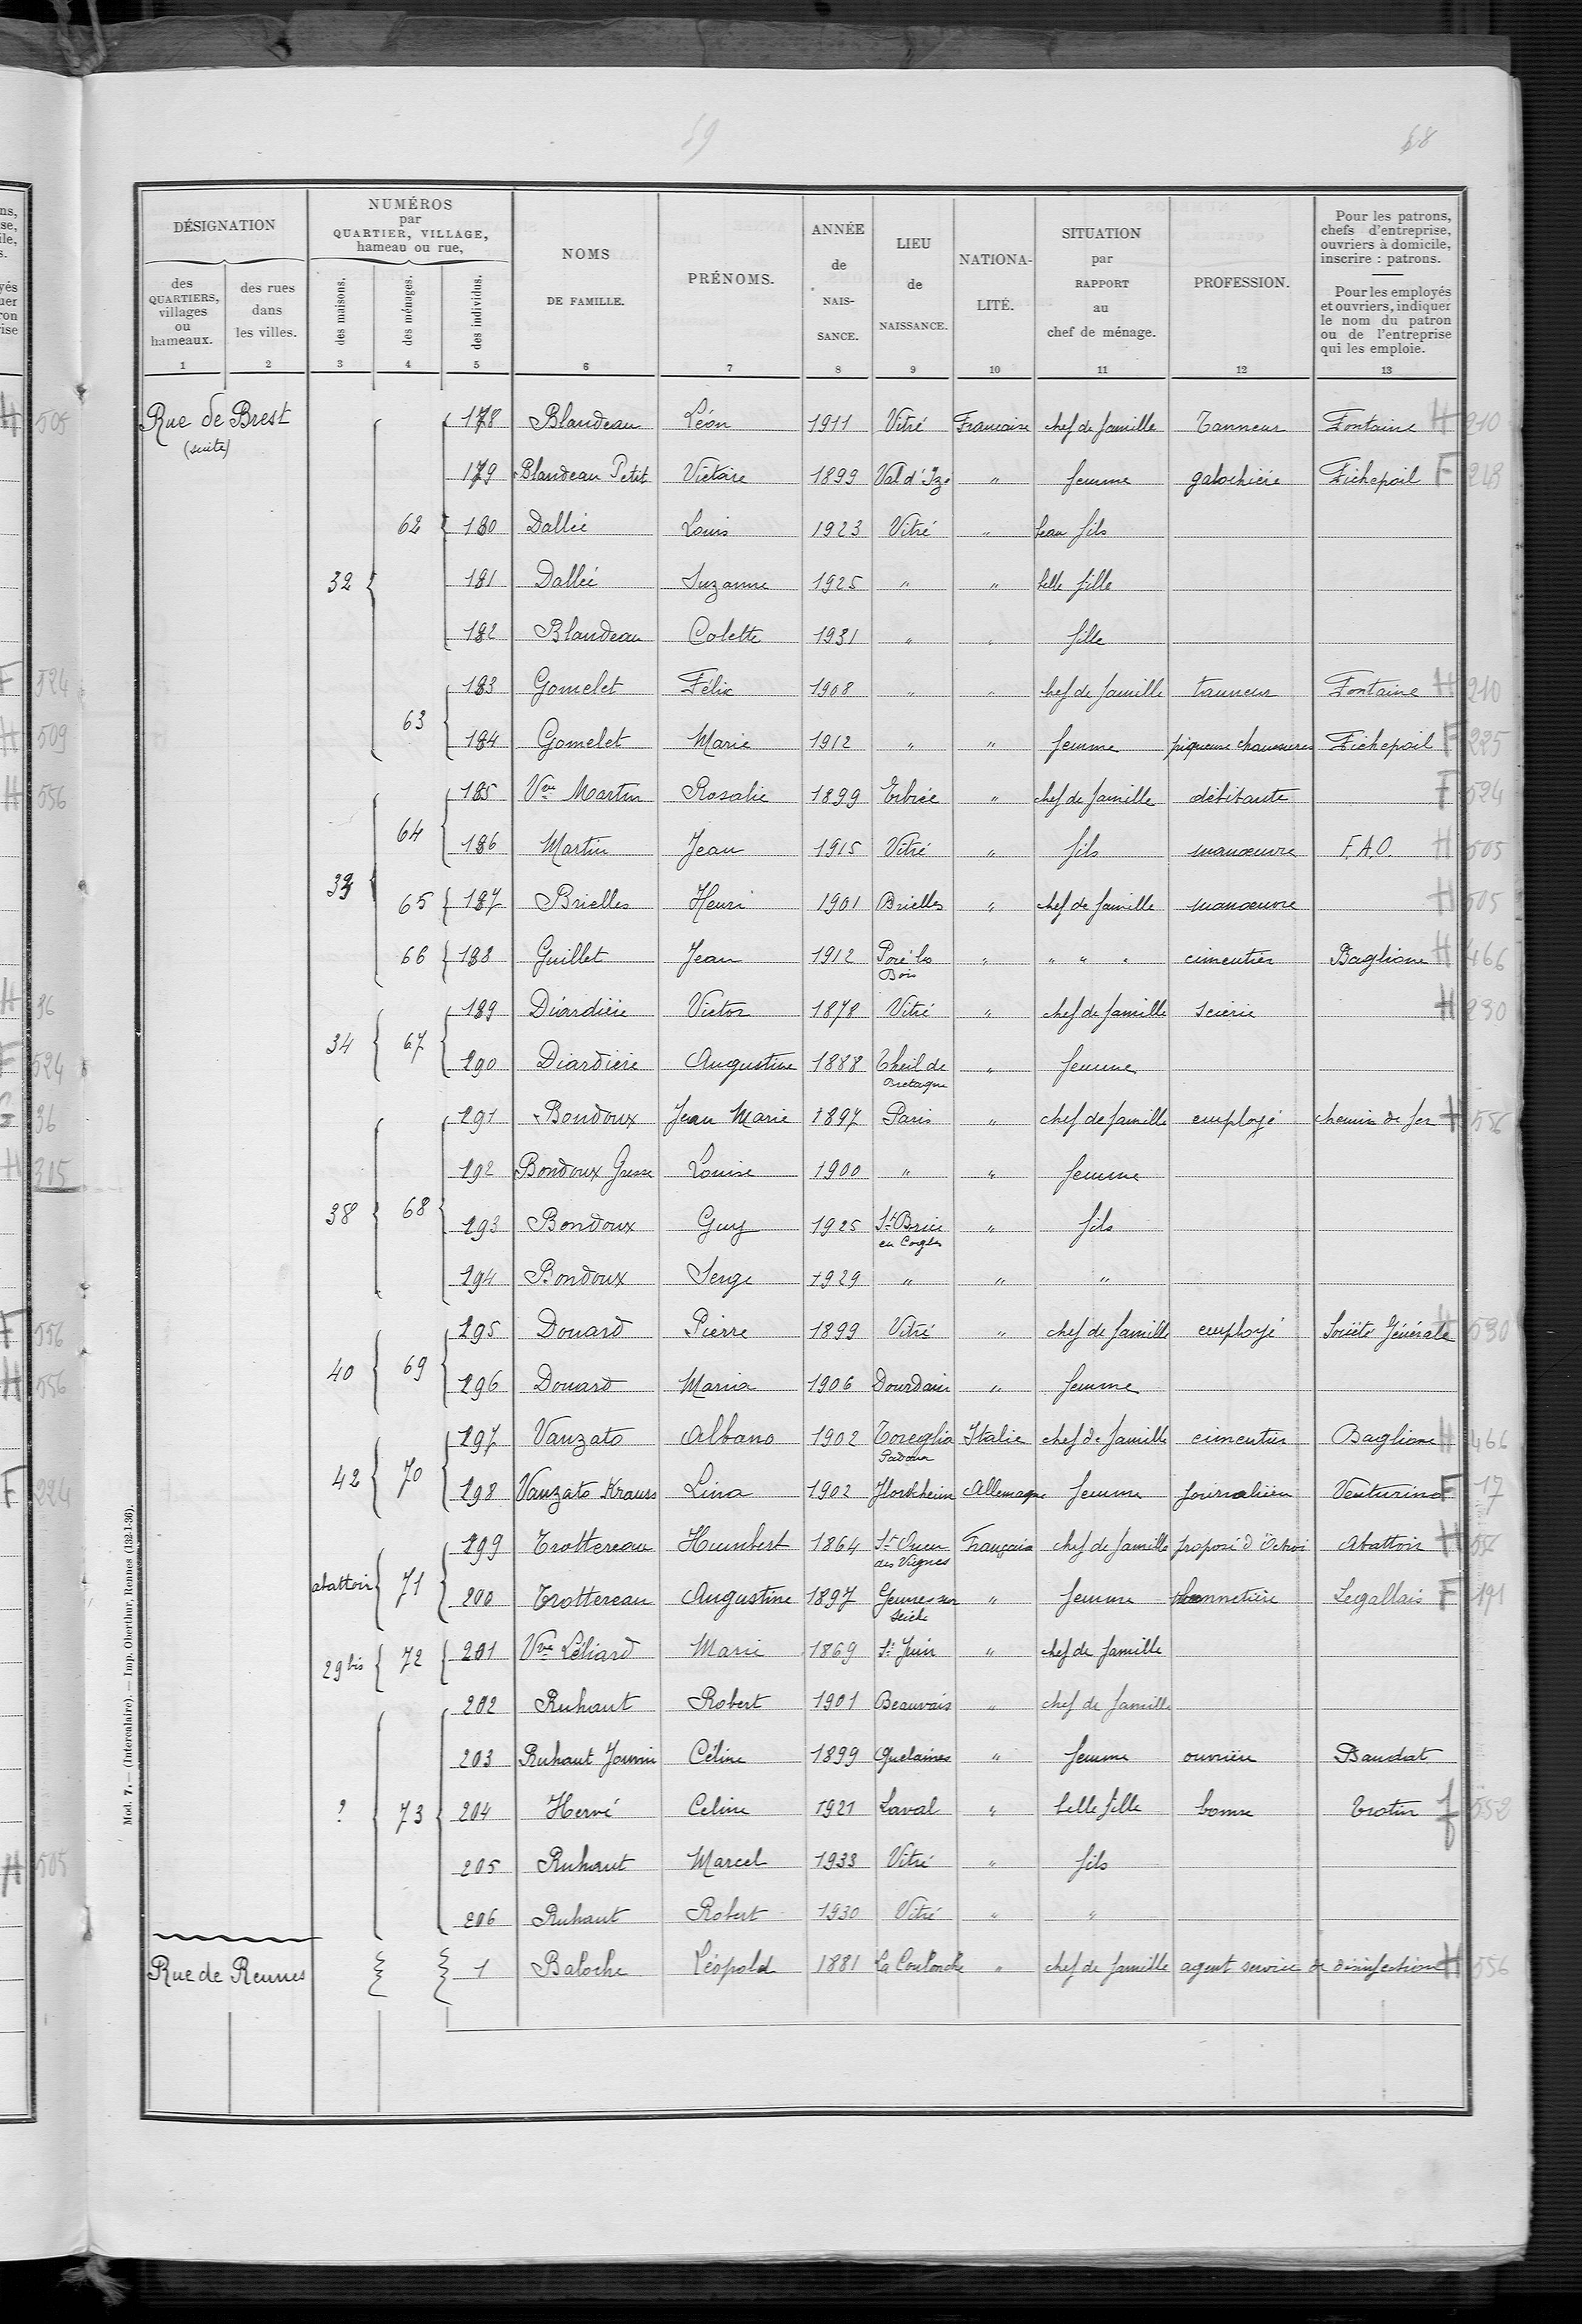 59
68
DÉSIGNATION
des QUARTIERS, villages ou hameaux.
des rues dans les villes.
NUMÉROS par QUARTIER, VILLAGE, hameau ou rue,
des maisons.
des ménages.
des individus.
NOMS DE FAMILLE.
PRÉNOMS.
ANNÉE de NAIS-SANCE.
LIEU de NAISSANCE.
NATIONA-LITÉ.
SITUATION par RAPPORT au chef de ménage.
PROFESSION.
Pour les patrons, chefs d'entreprise, ouvriers à domicile, inscrire : patrons.
Pour les employés et ouvriers, indiquer le nom du patron ou de l'entreprise qui les emploie.
1 2 3 4 5 6 7 8 9 10 11 12 13
Rue de Brest (suite)
178 Blandeau Léon 1911 Vitré Française chef de famille Tanneur Fontaine H 210
179 Blandeau Petit Victoire 1899 Val d'Izé " femme galochière Fichepoil F 213
32 62 180 Dallié Louis 1923 Vitré " beau fils
181 Dallié Suzanne 1925 " " belle fille
182 Blandeau Colette 1931 " " fille
63 183 Gomelet Félix 1908 " " chef de famille tanneur Fontaine H 210
184 Gomelet Marie 1912 " " femme piqueuse chaussures Fichepoil F 225
33 64 185 Vve Martin Rosalie 1899 Erbrée " chef de famille débitante F 524
186 Martin Jean 1915 Vitré " fils manœuvre F.A.O. H 505
65 187 Brielles Henri 1901 Brielles " chef de famille manœuvre H 505
66 188 Guillet Jean 1912 Pocé les Bois " " " " cimentier Baglione H 466
34 67 189 Diardière Victor 1878 Vitré " chef de famille scierie H 230
190 Diardière Augustine 1888 Theil de Bretagne " femme
38 68 191 Bondoux Jean Marie 1897 Paris " chef de famille employé chemin de fer H 556
192 Bondoux Louise 1900 " " femme
193 Bondoux Guy 1925 St Brice en Cogles " fils
194 Bondoux Serge 1929 " " "
40 69 195 Douard Pierre 1899 Vitré " chef de famille employé Société Générale H 530
196 Douard Maria 1906 Dourdain " femme
42 70 197 Vanzato Albano 1902 Toreglia Padoua Italie chef de famille cimentier Baglione H 466
198 Vanzato Krauss Lina 1902 Allemagne femme journalière Venturino F 17
abattoir 71 199 Trottereau Humbert 1864 St Ouen des Vignes Française chef de famille préposé d'Octroi Abattoir H 556
200 Trottereau Augustine 1897 Gennes sur Seiche " femme bonnetière Legallais F 191
29 bis 72 201 Vve Léliard Marie 1869 St Juin " chef de famille
? 73 202 Ruhaut Robert 1901 Beauvais " chef de famille
203 Ruhaut Jouvin Céline 1899 Quelaines " femme ouvrière Baudat
204 Hervé Celine 1921 Laval " belle fille bonne Trotin f 552
205 Ruhaut Marcel 1933 Vitré " fils
206 Ruhaut Robert 1930 Vitré " "
Rue de Rennes 1 Baloche Léopold 1881 La Coulonche " chef de famille agent service de désinfection H 556
Mod. 7. — (Intercalaire). — Imp. Oberthur, Rennes (132-1-36).